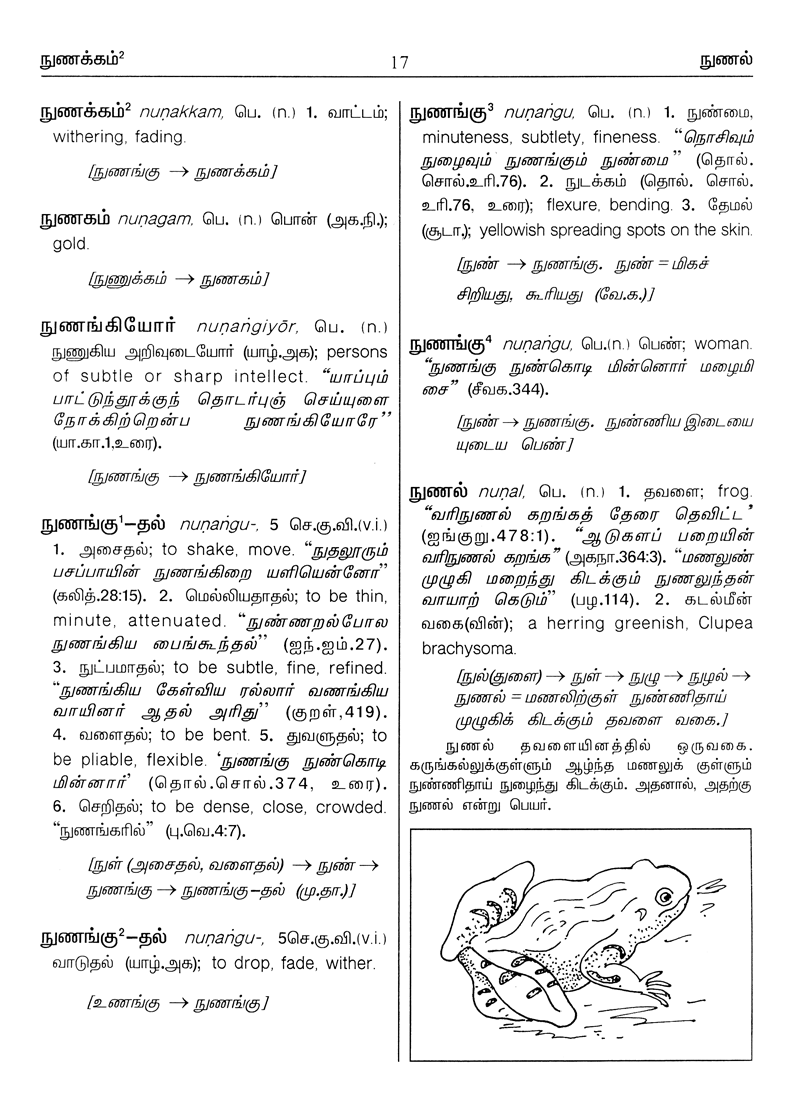 நுணக்கம்²
17
நுணல்
நுணக்கம்² nuṇakkam, பெ. (n.) 1. வாட்டம்;
withering, fading.
[நுணங்கு → நுணக்கம்]
நுணகம் nuṇagam, பெ. (n.) பொன் (அக.நி.);
gold.
[நுணுக்கம் → நுணகம்]
நுணங்கியோர் nuṇaṅgiyōr, பெ. (n.)
நுணுகிய அறிவுடையோர் (யாழ்.அக); persons
of subtle or sharp intellect. “யாப்பும்
பாட்டுந்தூக்குந் தொடர்புஞ் செய்யுளை
நோக்கிற்றென்ப நுணங்கியோரே’’
(யா.கா.1,உரை).
[நுணங்கு → நுணங்கியோர்]
நுணங்கு¹–தல் nuṇaṅgu-, 5 செ.கு.வி.(v.i.)
1. அசைதல்; to shake, move. “நுதலூரும்
பசப்பாயின் நுணங்கிறை யளியென்னோ”
(கலித்.28:15). 2. மெல்லியதாதல்; to be thin,
minute, attenuated. “நுண்ணறல்போல
நுணங்கிய பைங்கூந்தல்’’ (ஐந்.ஐம்.27).
3. நுட்பமாதல்; to be subtle, fine, refined.
“நுணங்கிய கேள்விய ரல்லார் வணங்கிய
வாயினர் ஆதல் அரிது’’ (குறள்,419).
4. வளைதல்; to be bent. 5. துவளுதல்; to
be pliable, flexible. ‘நுணங்கு நுண்கொடி
மின்னார்’ (தொல்.சொல்.374, உரை).
6. செறிதல்; to be dense, close, crowded.
“நுணங்கரில்” (பு.வெ.4:7).
[நுள் (அசைதல், வளைதல்) → நுண் →
நுணங்கு → நுணங்கு–தல் (மு.தா.)]
நுணங்கு²–தல் nuṇaṅgu-, 5செ.கு.வி.(v.i.)
வாடுதல் (யாழ்.அக); to drop, fade, wither.
[உணங்கு → நுணங்கு]
நுணங்கு³ nuṇaṅgu, பெ. (n.) 1. நுண்மை,
minuteness, subtlety, fineness. “நொசிவும்
நுழைவும் நுணங்கும் நுண்மை’’ (தொல்.
சொல்.உரி.76). 2. நுடக்கம் (தொல். சொல்.
உரி.76, உரை); flexure, bending. 3. தேமல்
(சூடா.); yellowish spreading spots on the skin.
[நுண் → நுணங்கு. நுண் = மிகச்
சிறியது, கூரியது (வே.க.)]
நுணங்கு⁴ nuṇaṅgu, பெ.(n.) பெண்; woman.
“நுணங்கு நுண்கொடி மின்னொர் மழைமி
சை” (சீவக.344).
[நுண் → நுணங்கு. நுண்ணிய இடையை
யுடைய பெண்]
நுணல் nuṇal, பெ. (n.) 1. தவளை; frog.
“வரிநுணல் கறங்கத் தேரை தெவிட்ட’
(ஐங்குறு.478:1). “ஆடுகளப் பறையின்
வரிநுணல் கறங்க” (அகநா.364:3). “மணலுண்
முழுகி மறைந்து கிடக்கும் நுணலுந்தன்
வாயாற் கெடும்” (பழ.114). 2. கடல்மீன்
வகை(வின்); a herring greenish, Clupea
brachysoma.
[நுல்(துளை) → நுள் → நுழு → நுழல் →
நுணல் = மணலிற்குள் நுண்ணிதாய்
முழுகிக் கிடக்கும் தவளை வகை.]
நுணல் தவளையினத்தில் ஒருவகை.
கருங்கல்லுக்குள்ளும் ஆழ்ந்த மணலுக் குள்ளும்
நுண்ணிதாய் நுழைந்து கிடக்கும். அதனால், அதற்கு
நுணல் என்று பெயர்.